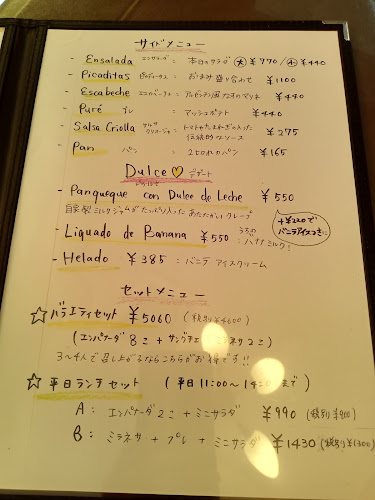 サイドメニュー
- Ensalada エンサラーダ : 本日のサラダ (大) ¥770 / (小) ¥440
- Picaditas ピカディータス : おつまみ盛り合わせ ¥1100
- Escabeche エスカベーチェ : アルゼンチン風 なすのマリネ ¥440
- Puré プレ : マッシュポテト ¥440
- Salsa Criolla サルサ クリオージャ : トマトやたまねぎの入った 伝統的なソース ¥275
- Pan パン : 2切れのパン ¥165
Dulce ♡ デザート
- Panqueque con Dulce de Leche ¥550
自家製ミルクジャムがたっぷり入ったあたたかいクレープ
+¥220で
バニラアイスつきに
- Liquado de Banana ¥550 : バナナミルク!
- Helado ¥385 : バニラアイスクリーム
セットメニュー
☆ バラエティセット ¥5060 (税別 ¥4600)
(エンパナーダ8こ + サングチェ ミラネサ2こ)
3〜4人で召し上がるならこちらがお得です!!
☆ 平日ランチセット (平日 11:00〜14:30 まで)
A: エンパナーダ2こ + ミニサラダ ¥990 (税別 ¥900)
B: ミラネサ + プレ + ミニサラダ ¥1430 (税別 ¥1300)